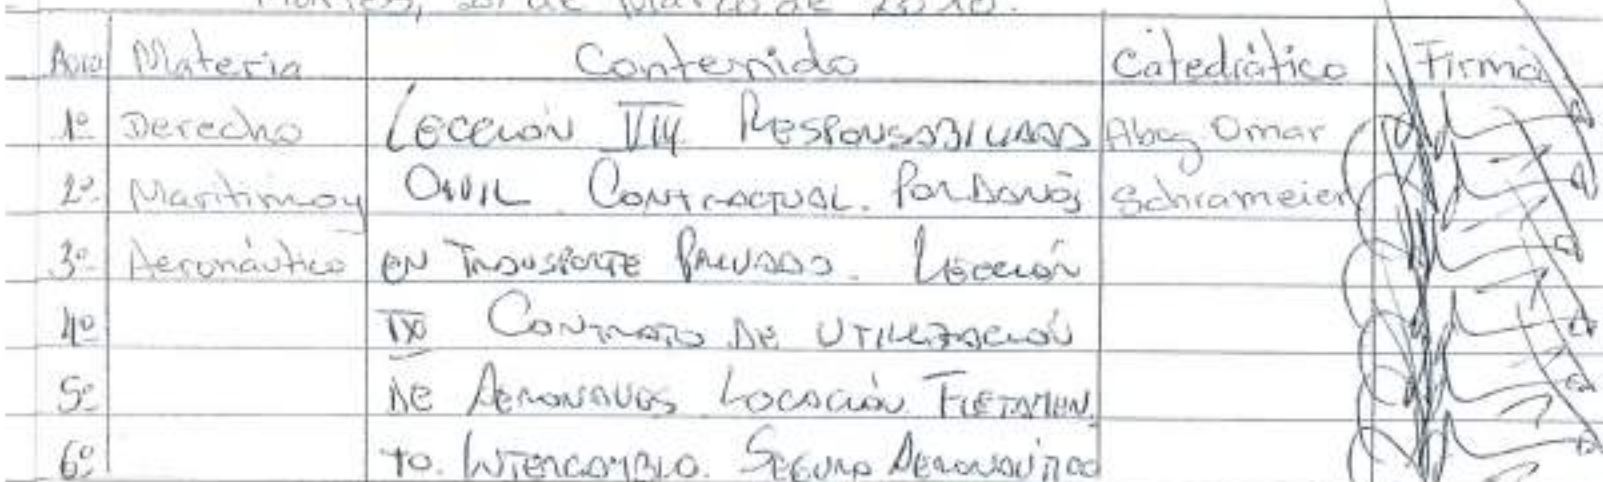 Martes, de Marzo de
Materia Contenido Catedrático Firma
1º Derecho Lección VIII Responsabilidad Abog Omar
2º Marítimo y Civil Contractual. Por Daños Schrameier
3º Aeronáutico en Transporte Privado. Lección
4º IX Contrato de Utilización
5º de Aeronaves Locación Fletamen
6º to. Intercambio. Seguro Aeronáutico